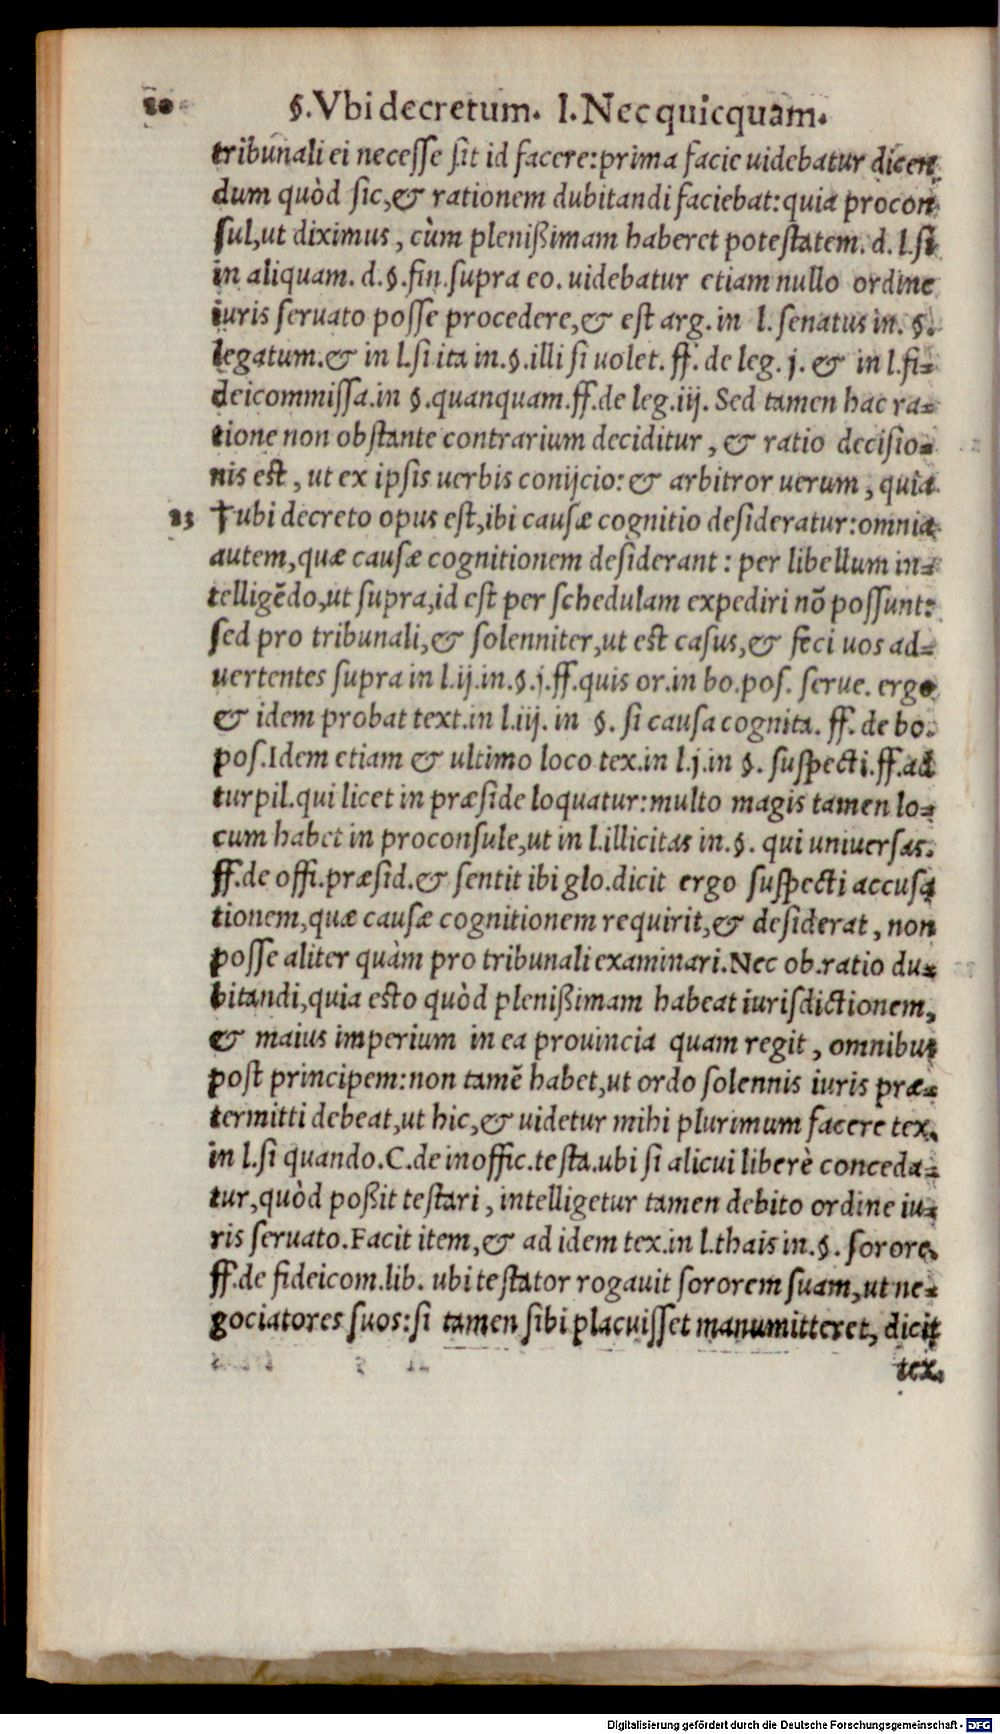 20 §. Vbi decretum. l. Nec quicquam.
tribunali ei necesse sit id facere: prima facie uidebatur dicen
dum quòd sic, & rationem dubitandi faciebat: quia procon
sul, ut diximus, cùm plenißimam haberet potestatem. d. l. si
in aliquam. d. §. fin. supra eo. uidebatur etiam nullo ordine
iuris seruato posse procedere, & est arg. in l. senatus in. §.
legatum. & in l. si ita in. §. illi si uolet. ff. de leg. j. & in l. fi-
deicommissa. in §. quanquam. ff. de leg. iij. Sed tamen hac ra-
tione non obstante contrarium deciditur, & ratio decisio-
nis est, ut ex ipsis uerbis conijcio: & arbitror uerum, quia
23 † ubi decreto opus est, ibi causæ cognitio desideratur: omnia
autem, quæ causæ cognitionem desiderant: per libellum in-
telligẽdo, ut supra, id est per schedulam expediri nõ possunt:
sed pro tribunali, & solenniter, ut est casus, & feci uos ad-
uertentes supra in l. ij. in. §. j. ff. quis or. in bo. pos. serue. ergo
& idem probat text. in l. iij. in §. si causa cognita. ff. de bo.
pos. Idem etiam & ultimo loco tex. in l. j. in §. suspecti. ff. ad
turpil. qui licet in præside loquatur: multo magis tamen lo-
cum habet in proconsule, ut in l. illicitas in. §. qui uniuersas.
ff. de offi. præsid. & sentit ibi glo. dicit ergo suspecti accusa
tionem, quæ causæ cognitionem requirit, & desiderat, non
posse aliter quàm pro tribunali examinari. Nec ob. ratio du-
bitandi, quia esto quòd plenißimam habeat iurisdictionem,
& maius imperium in ea prouincia quam regit, omnibus
post principem: non tamẽ habet, ut ordo solennis iuris præ-
termitti debeat, ut hic, & uidetur mihi plurimum facere tex.
in l. si quando. C. de inoffic. testa. ubi si alicui liberè conceda-
tur, quòd poßit testari, intelligetur tamen debito ordine iu-
ris seruato. Facit item, & ad idem tex. in l. thais in. §. sorore.
ff. de fideicom. lib. ubi testator rogauit sororem suam, ut ne-
gociatores suos: si tamen sibi placuisset manumitteret, dicit
tex.
Digitalisierung gefördert durch die Deutsche Forschungsgemeinschaft - DFG